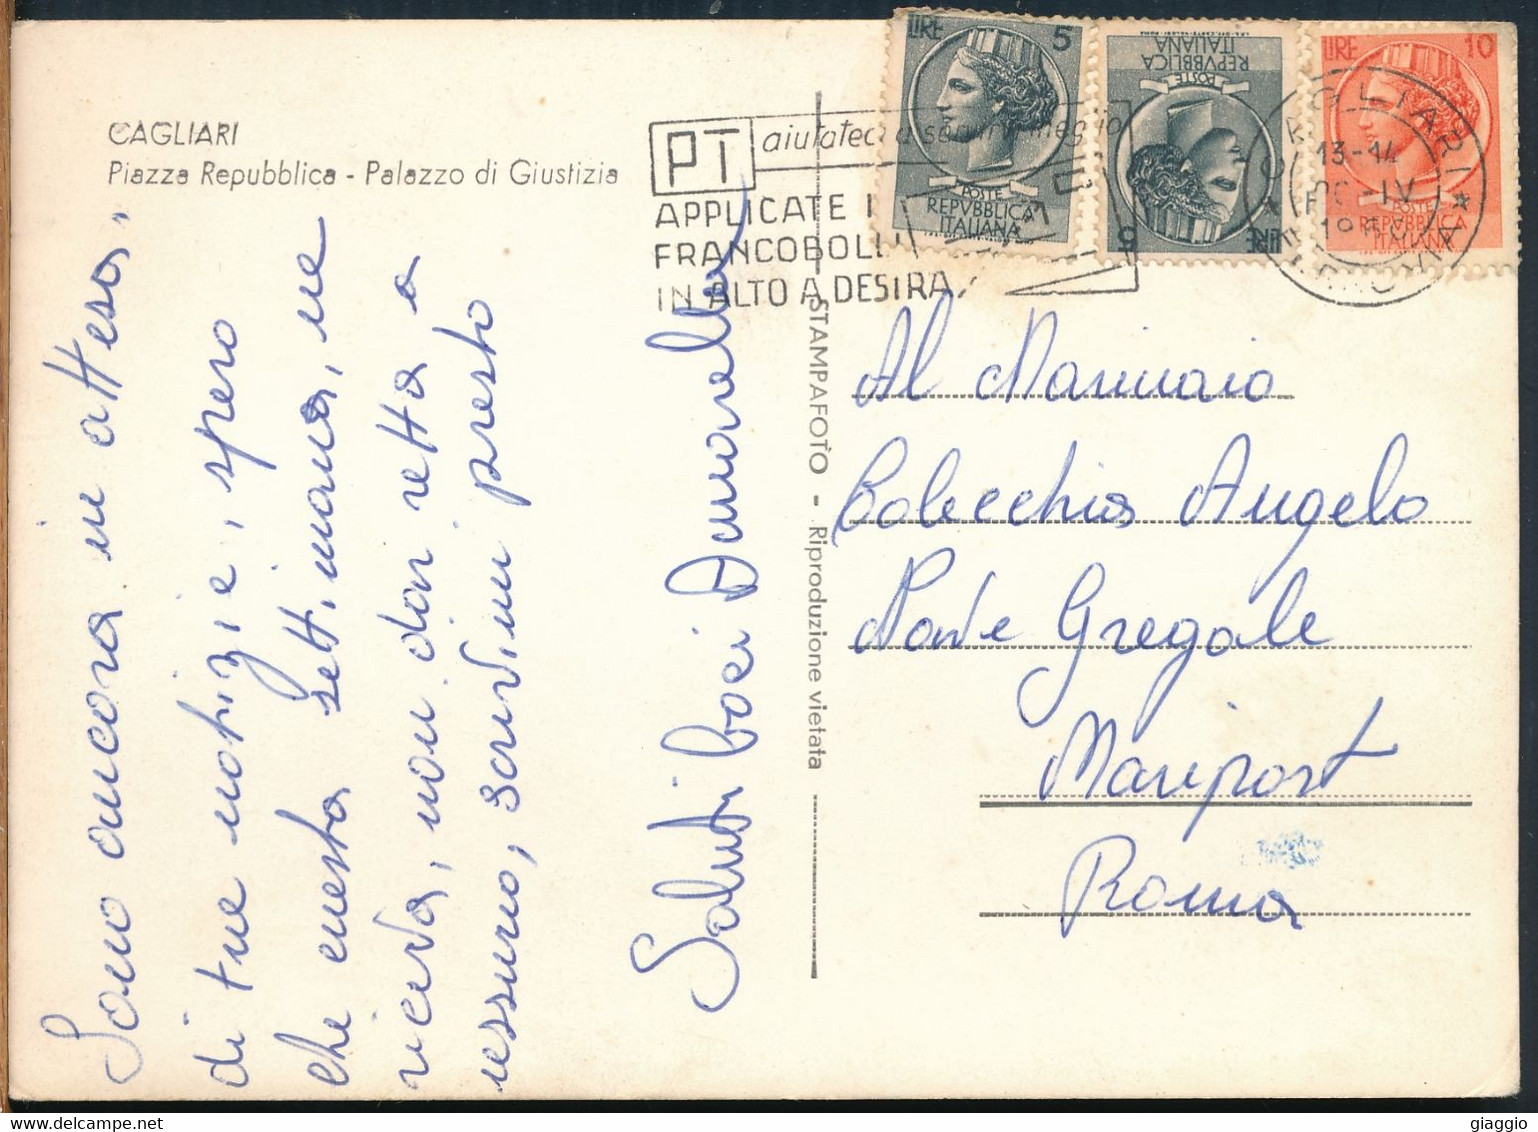 CAGLIARI
Piazza Repubblica - Palazzo di Giustizia
PT
aiutateci a servirvi meglio
APPLICATE I
FRANCOBOLLI
IN ALTO A DESTRA
LIRE 5
POSTE
REPVBBLICA
ITALIANA
LIRE 5
POSTE
REPVBBLICA
ITALIANA
LIRE 10
POSTE
REPVBBLICA
ITALIANA
CAGLIARI
13-14
IV
FERROVIA
Sono ancora in attesa,
di tue notizie, spero
che questa settimana, ne
riceva, non dar retta a
nessuno, scrivimi presto
Saluti baci Annarella
STAMPAFOTO - Riproduzione vietata
Al Marinaio
Angelo
Ponte Gregale
Maripost
Roma
giaggio